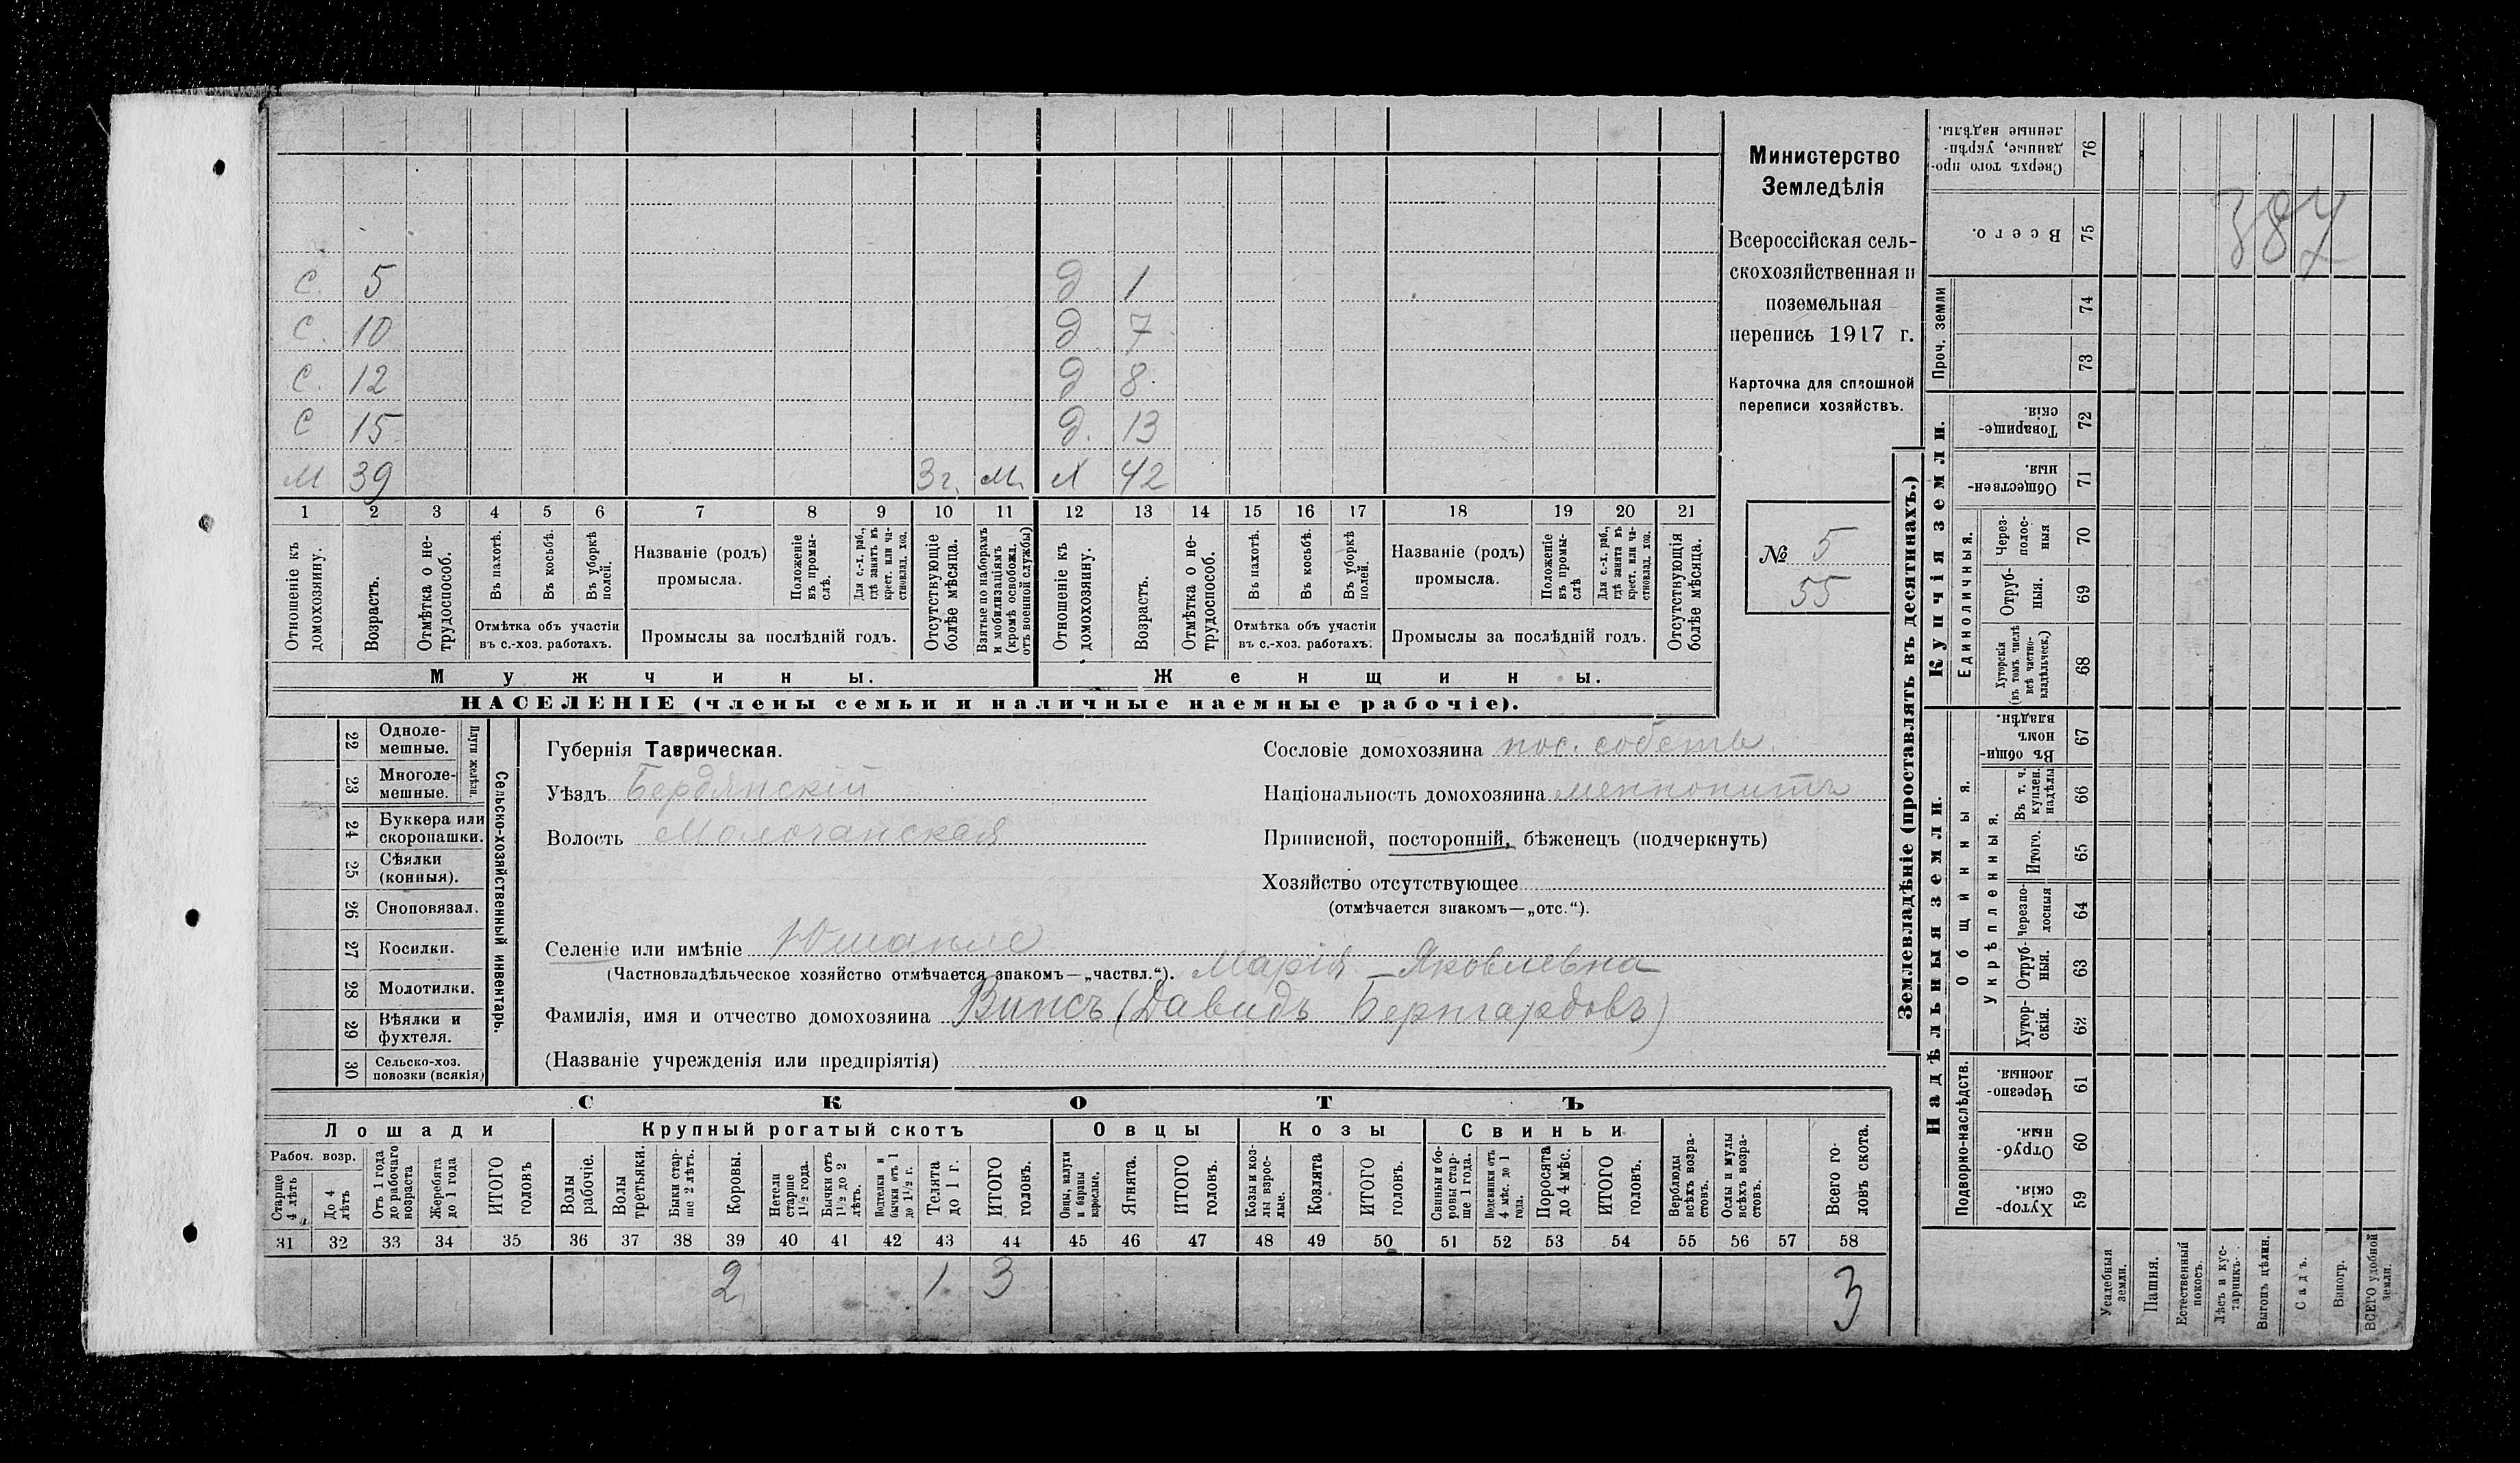 Министерство
Земледѣлія
Всероссійская сель-
скохозяйственная и
поземельная
перепись 1917 г.
Карточка для сплошной
переписи хозяйствъ.
№ 5
55
387
С. 5 д 1
С. 10 д 7
С. 12 д 8
С 15 д. 13
М 39 3 г. м. Х 42
1 2 3 4 5 6 7 8 9 10 11 12 13 14 15 16 17 18 19 20 21
Отношеніе къ домохозяину.
Возрастъ.
Отмѣтка о не-трудоспособ.
Въ пахотѣ.
Въ косьбѣ.
Въ уборкѣ полей.
Отмѣтка объ участіи
въ с.-хоз. работахъ.
Названіе (родъ)
промысла.
Положеніе въ промы-слѣ.
Для с.-х. раб., гдѣ занятъ въ крест. или ча-стновлад. хоз.
Промыслы за послѣдній годъ.
Отсутствующіе болѣе мѣсяца.
Взятые по наборамъ и мобилизаціямъ (кромѣ освобожд. отъ военной службы)
Отношеніе къ домохозяину.
Возрастъ.
Отмѣтка о не-трудоспособ.
Въ пахотѣ.
Въ косьбѣ.
Въ уборкѣ полей.
Отмѣтка объ участіи
въ с.-хоз. работахъ.
Названіе (родъ)
промысла.
Положеніе въ промы-слѣ
Для с.-х. раб., гдѣ занята въ крест. или ча-стновлад. хоз.
Промыслы за послѣдній годъ.
Отсутствующія болѣе мѣсяца.
Мужчины.
Женщины.
НАСЕЛЕНІЕ (члены семьи и наличные наемные рабочіе).
22 Одноле-мешные.
23 Многоле-мешные.
Плуги желѣзн.
24 Буккера или скоропашки.
25 Сѣялки (конныя).
26 Сноповязал.
27 Косилки.
28 Молотилки.
29 Вѣялки и фухтеля.
30 Сельско-хоз. повозки (всякія)
Сельско-хозяйственный инвентарь.
Губернія Таврическая.
Уѣздъ Бердянскій
Волость Молочанская
Сословіе домохозяина пос. собств.
Національность домохозяина меннонитъ
Приписной, посторонній, бѣженецъ (подчеркнуть)
Хозяйство отсутствующее
(отмѣчается знакомъ—„отс.“).
Селеніе или имѣніе Юшанле
(Частновладѣльческое хозяйство отмѣчается знакомъ—„частвл.“). Марія Яковлевна
Фамилія, имя и отчество домохозяина Винсъ (Давидъ Бернгардовъ)
(Названіе учрежденія или предпріятія)
СКОТЪ
Лошади
Крупный рогатый скотъ
Овцы
Козы
Свиньи
Рабоч. возр.
Старше 4 лѣтъ
До 4 лѣтъ
Отъ 1 года до рабочаго возраста
Жеребята до 1 года
ИТОГО головъ
Волы рабочіе.
Волы третьяки.
Быки стар-ше 2 лѣтъ.
Коровы.
Нетели старше 1 1/2 года.
Бычки отъ 1 1/2 до 2 лѣтъ.
Подтелки и бычки отъ 1 до 1 1/2 г.
Телята до 1 г.
ИТОГО головъ.
Овцы, валухи и бараны взрослые.
Ягнята.
ИТОГО головъ.
Козы и коз-лы взрос-лые.
Козлята
ИТОГО головъ.
Свиньи и бо-ровы стар-ше 1 года.
Подсвинки отъ 4 мѣс. до 1 года.
Поросята до 4 мѣс.
ИТОГО головъ.
Верблюды всѣхъ возра-стовъ.
Ослы и мулы всѣхъ возра-стовъ.
Всего го-ловъ скота.
31 32 33 34 35 36 37 38 39 40 41 42 43 44 45 46 47 48 49 50 51 52 53 54 55 56 57 58
2 1 3 3
Землевладѣніе (проставлять въ десятинахъ.)
Надѣльныя земли.
Купчія земли.
Проч. земли
Подворно-наслѣдств.
Общинныя.
Укрѣпленныя.
Единоличныя.
Сверхъ того про-данные, укрѣп-ленные надѣлы. 76
Всего. 75
74
73
Товарище-скія. 72
Обществен-ныя. 71
Через-полос-ныя 70
Отруб-ныя. 69
Хуторскія (въ томъ числѣ всѣ частно-владѣльческ.) 68
Въ общин-номъ владѣн. 67
Въ т. ч. куплен. надѣлы 66
Итого. 65
Черезпо-лосныя 64
Отруб-ныя. 63
Хутор-скія. 62
Черезпо-лосныя. 61
Отруб-ныя. 60
Хутор-скія. 59
Усадебныя земли.
Пашня.
Естественный покосъ.
Лѣсъ и кус-тарникъ.
Выгонъ цѣлин.
Садъ.
Виногр.
ВСЕГО удобной земли.